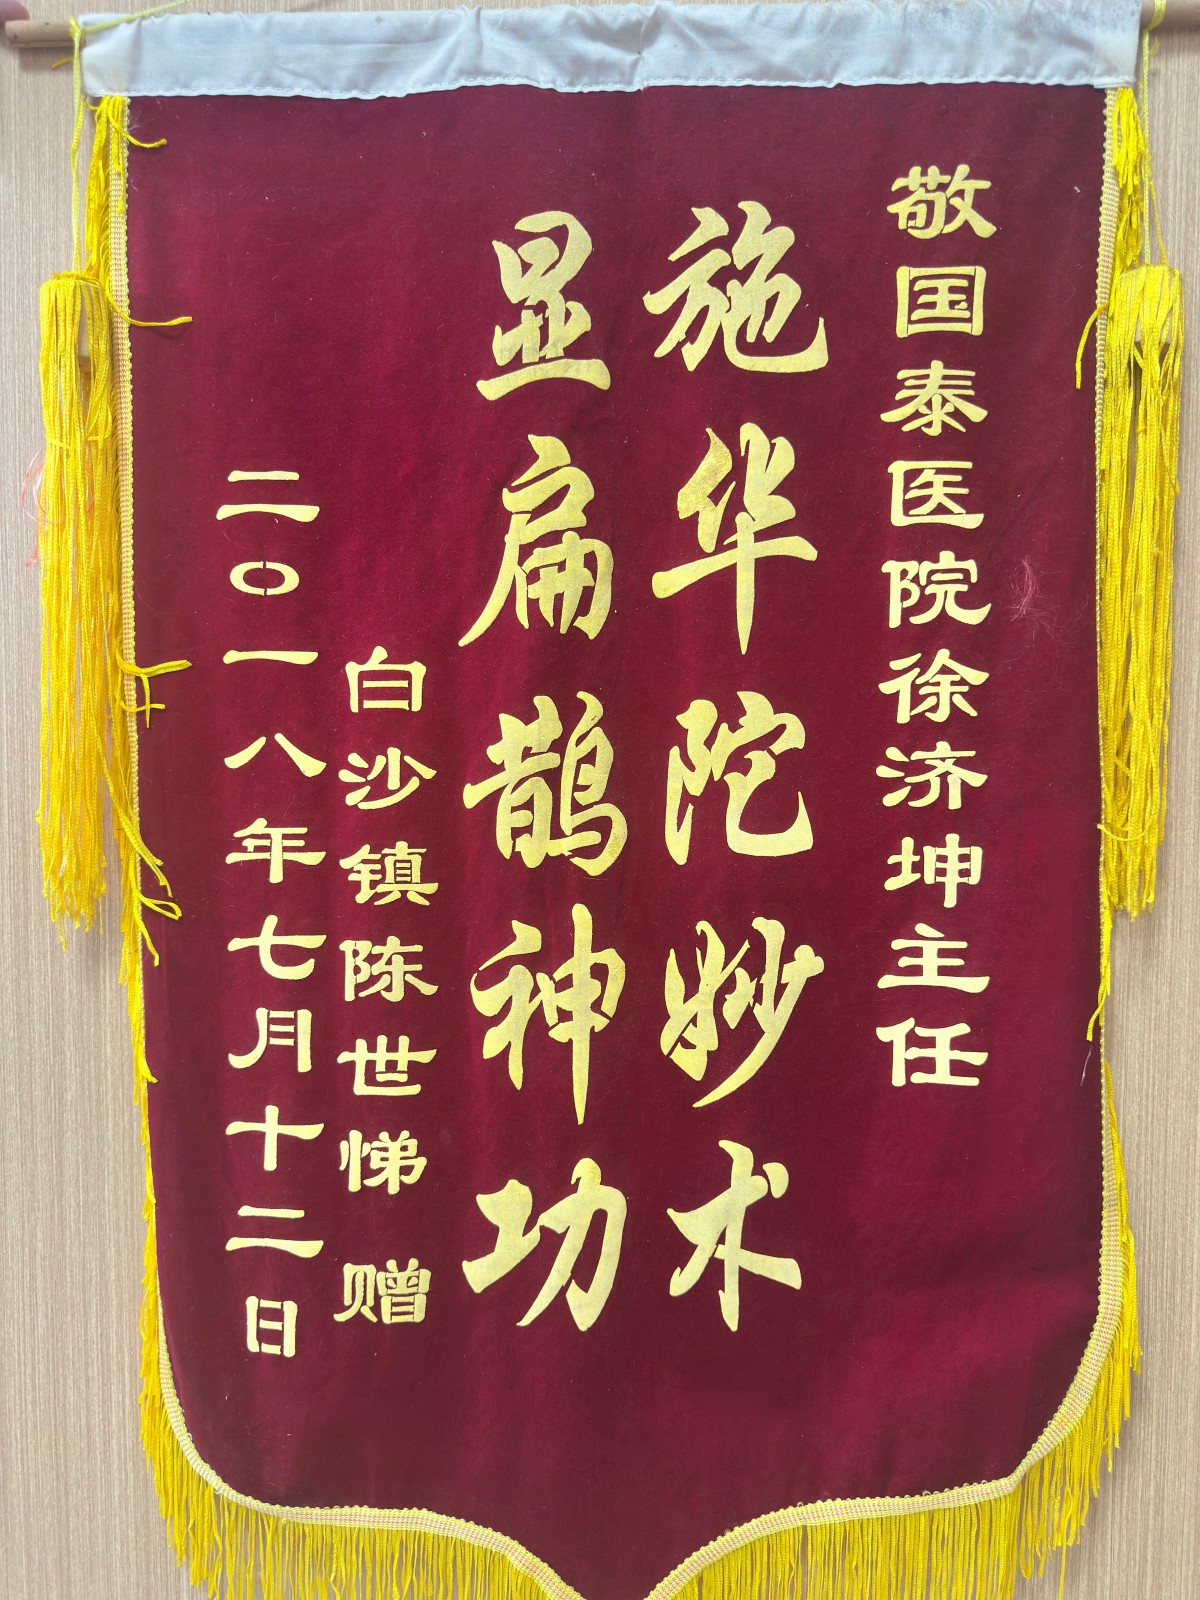 敬国泰医院徐济坤主任
施华陀妙术
显扁鹊神功
白沙镇陈世悌 赠
二〇一八年七月十二日